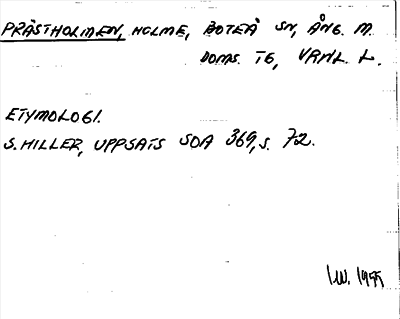 PRÄSTHOLMEN, HOLME, BOTEÅ SN, ÅNG. M.
DOMS. TG, VRML. L.
ETYMOLOGI.
S. HILLER, UPPSATS SOA 369, S. 72.
I.W. 1955